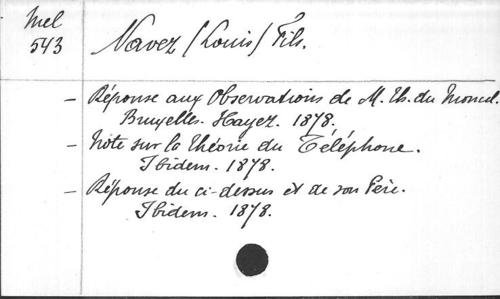 Mel
543
Navez (Louis) Fils.
– Réponse aux Observations de M. Th. du Moncel.
Bruxelles. Hayez. 1878.
– Note sur la théorie du Téléphone.
Ibidem. 1878.
– Réponse du ci-dessus et de son Père.
Ibidem. 1878.